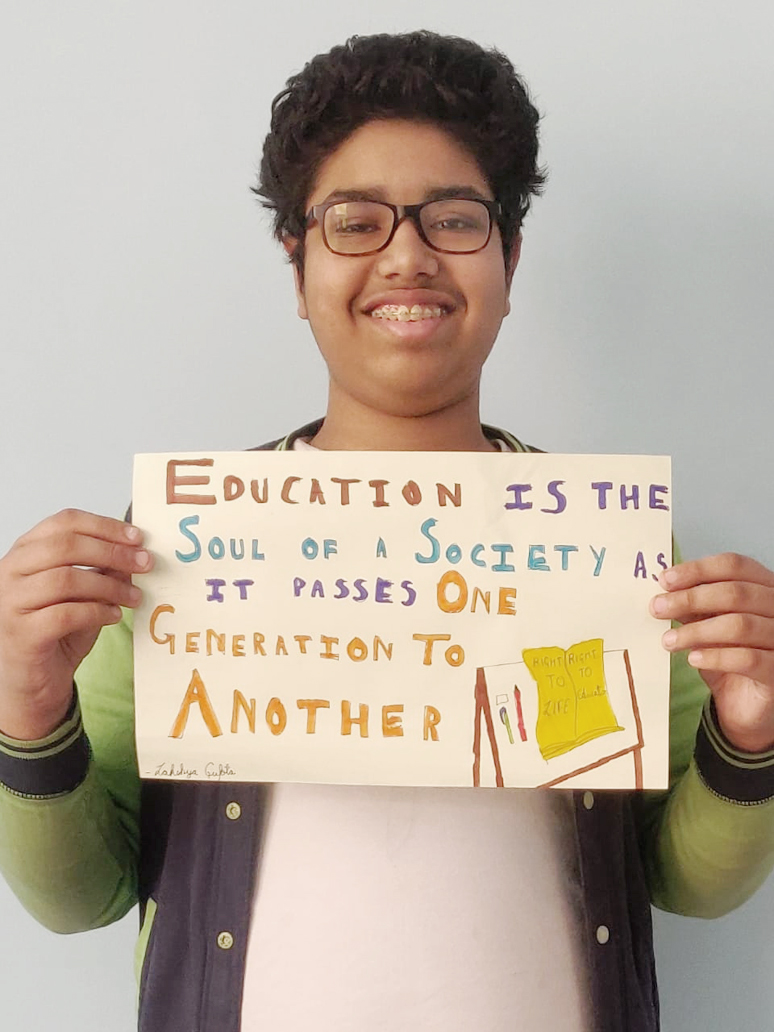 EDUCATION IS THE
SOUL OF A SOCIETY AS
IT PASSES ONE
GENERATION TO
ANOTHER
RIGHT TO LIFE
RIGHT TO
- Lakshya Gupta